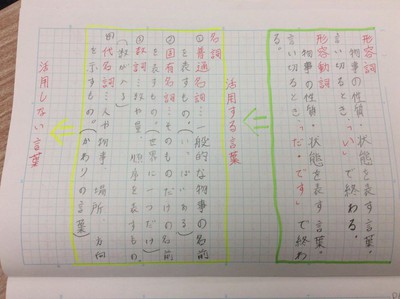 形容詞
物事の性質・状態を表す言葉。
言い切るとき、「い」で終わる。
形容動詞
物事の性質・状態を表す言葉。
言い切るとき、「だ・です」で終わ
る。
活用する言葉
名詞
①普通名詞…一般的な物事の名前
(いっぱいある)
②固有名詞…そのものだけの名前
を表すもの。(世界に一つだけ)
③数詞…数や量、順序を表すもの。
(数が入る)
④代名詞…人や物事、場所、方向
を示すもの。(かわりの言葉)
活用しない言葉